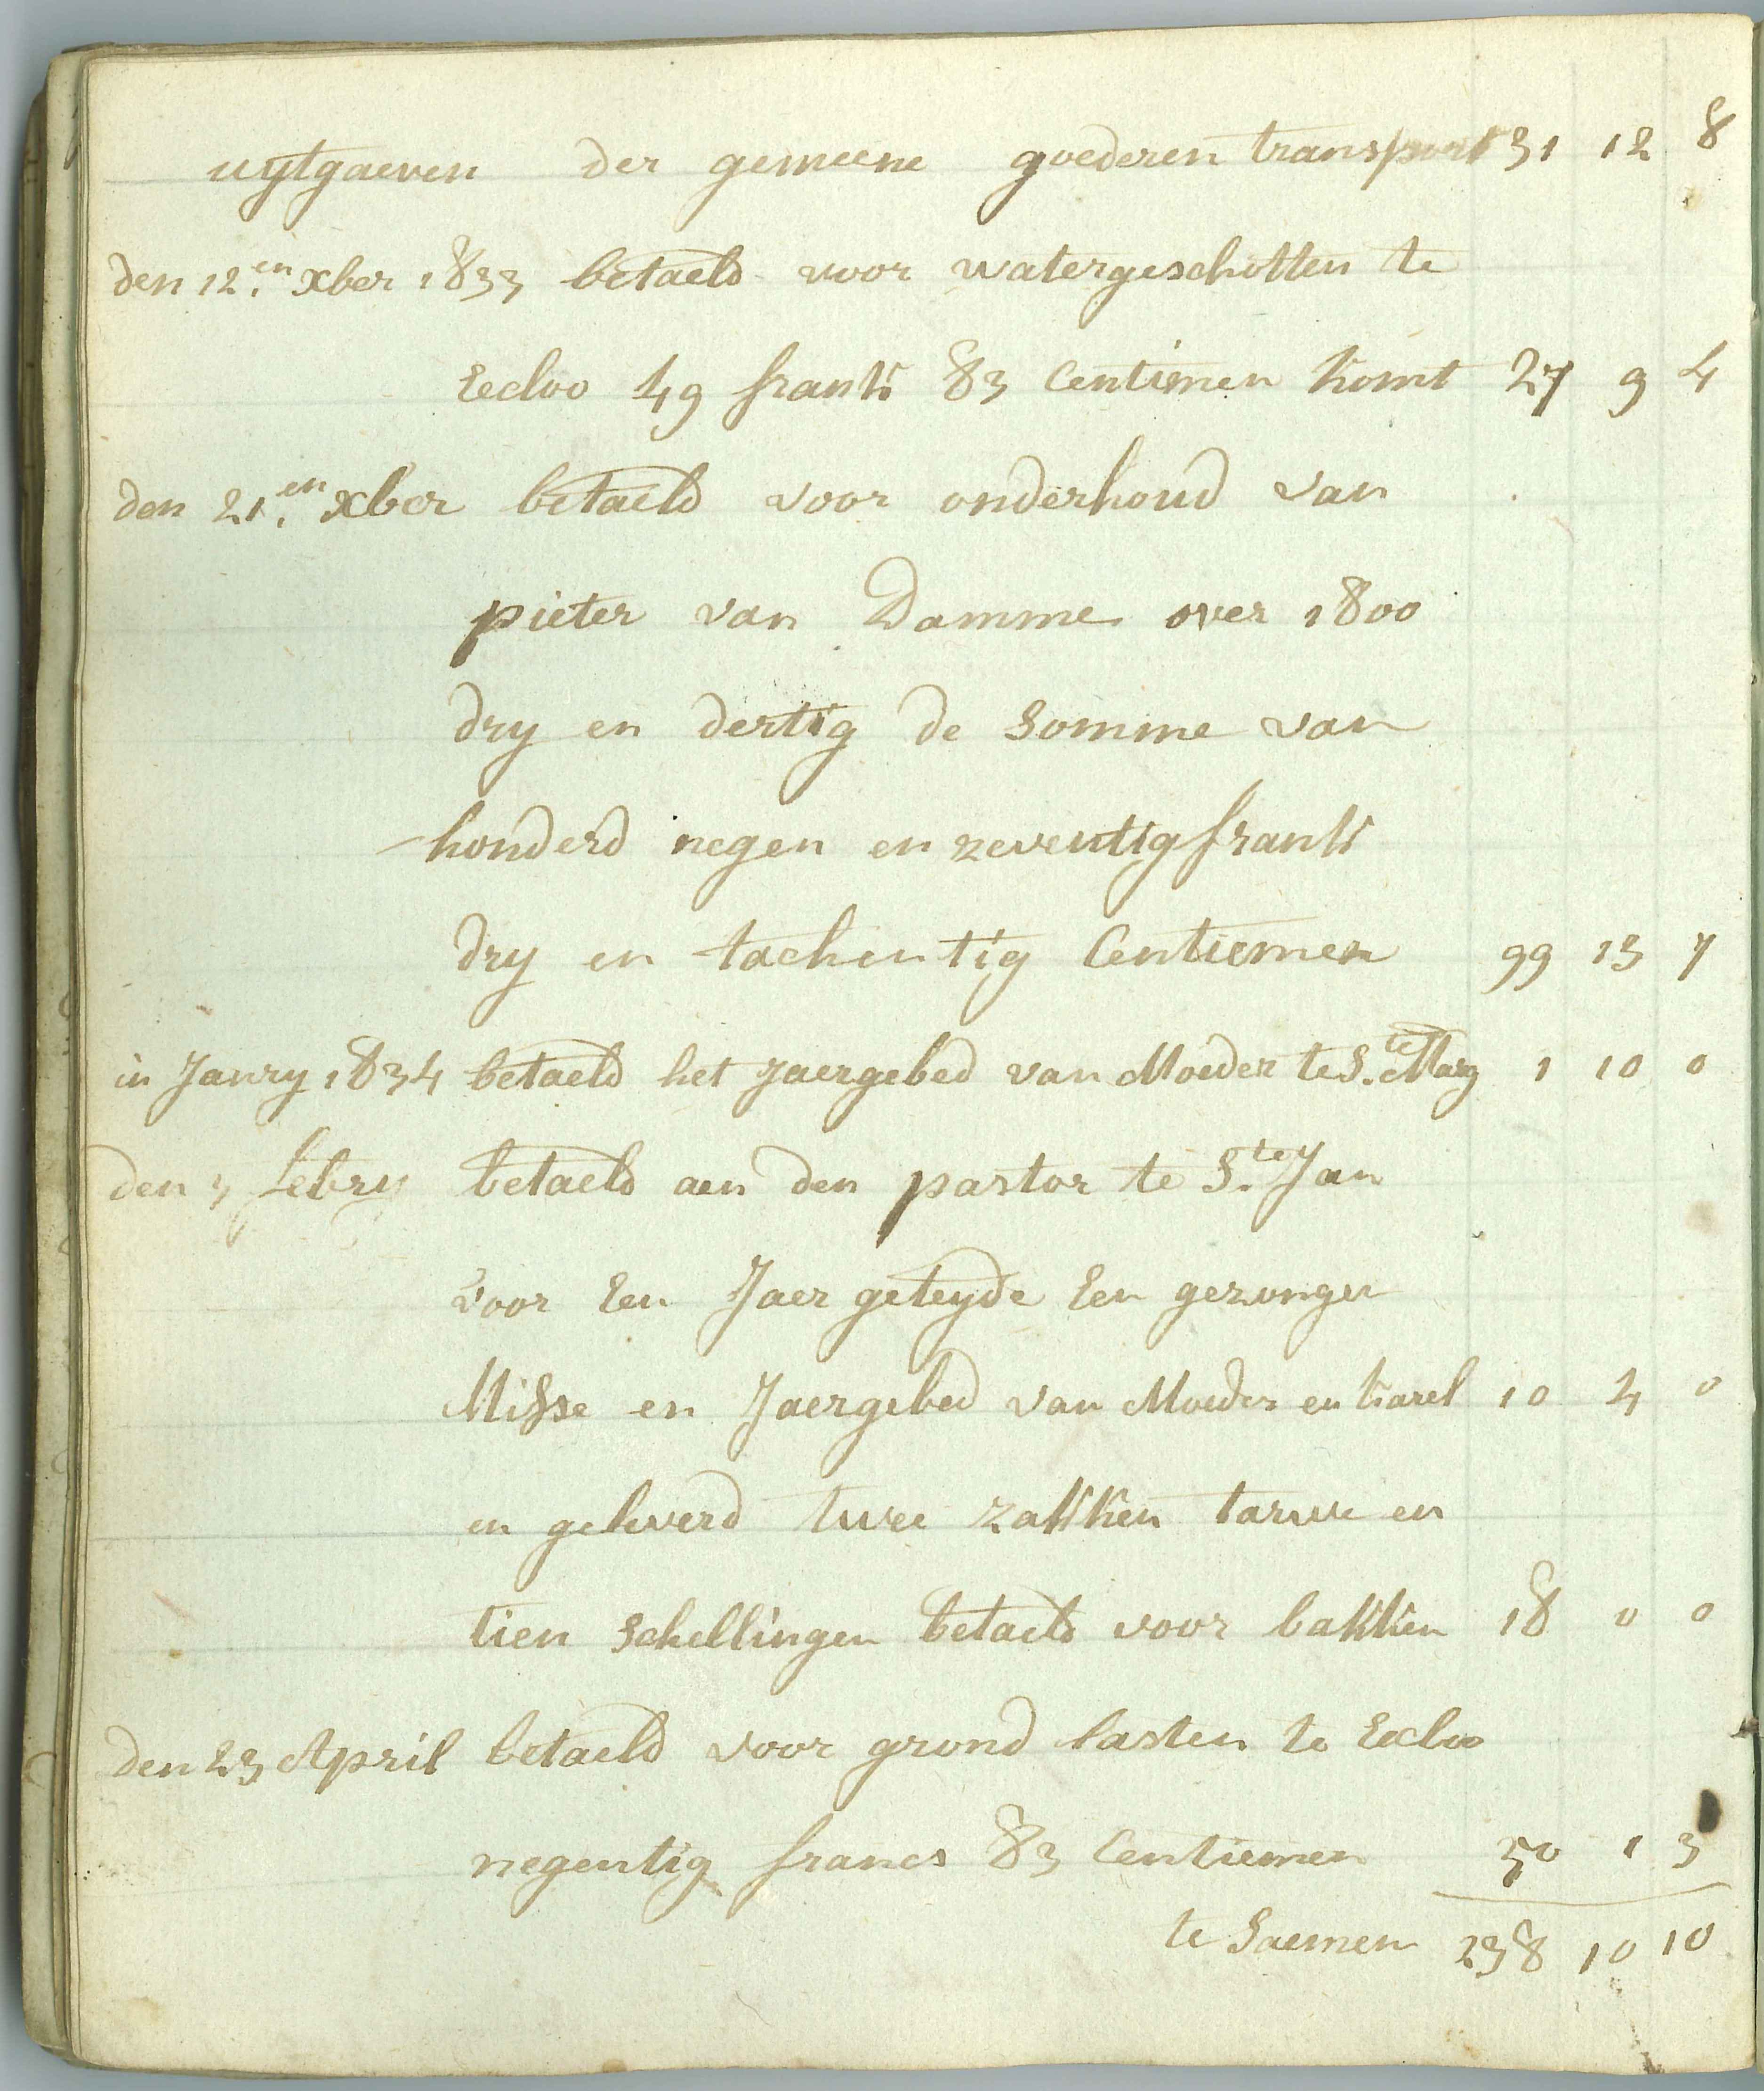 uÿtgaeven der gemeene goederen transport 31 12 8
den 12.en xber 1833 betaeld voor watergeschotten te
Eecloo 49 franks 83 Centimen komt 27 9 4
den 21.en xber betaeld voor onderhoud van
pieter van Damme over 1800
dry en dertig de Somme van
honderd negen en zeventig franks
dry en tachentig Centiemen 99 13 7
in Janry 1834 betaeld het jaergebed van Moeder te S.te Marg 1 10 0
den 3 febry betaeld aen den pastor te S.te Jan
voor Een Jaer geteyde Een gezongen
Misse en Jaergebed van Moeder en karel 10 4 0
en geleverd twee zakken tarwe en
tien Schellingen betaeld voor bakken 18 0 0
den 23 April betaeld voor grond lasten te Eecloo
negentig francs 83 Centiemen 50 1 3
te Saemen 238 10 10